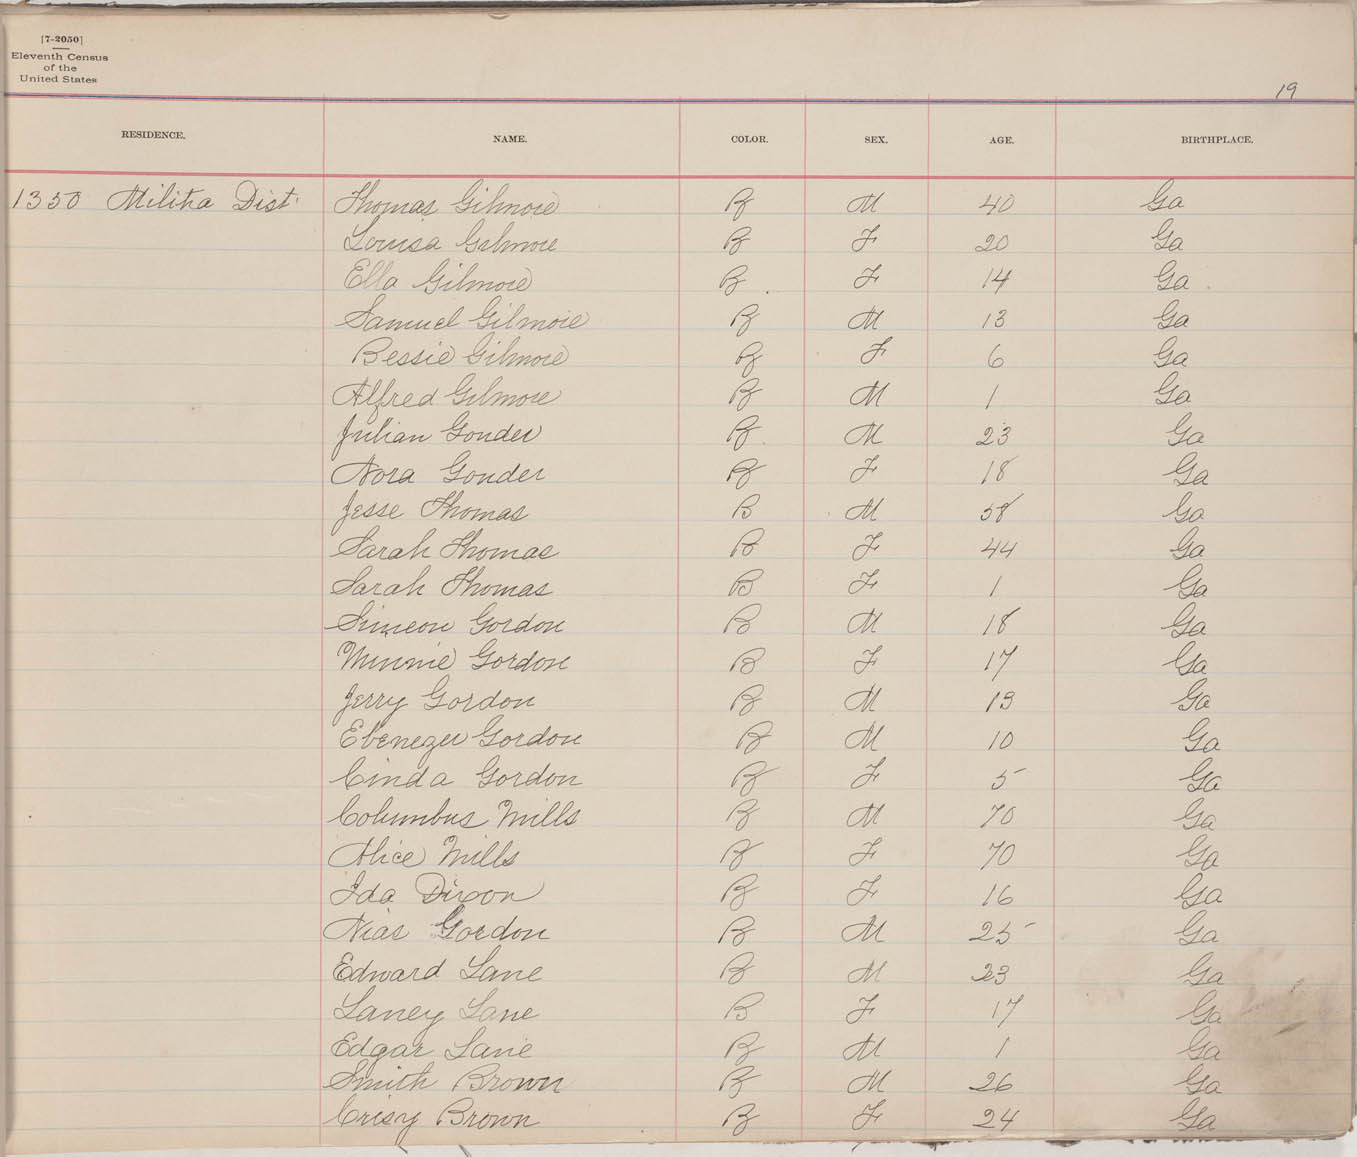 [7-2050]
Eleventh Census
of the
United States
19
RESIDENCE. NAME. COLOR. SEX. AGE. BIRTHPLACE.
1350 Militia Dist. Thomas Gilmore B M 40 Ga
Louisa Gilmore B F 20 Ga
Ella Gilmore B F 14 Ga
Samuel Gilmore B M 13 Ga
Bessie Gilmore B F 6 Ga
Alfred Gilmore B M 1 Ga
Julian Gonder B M 23 Ga
Nora Gonder B F 18 Ga
Jesse Thomas B M 58 Ga
Sarah Thomas B F 44 Ga
Sarah Thomas B F 1 Ga
Simeon Gordon B M 18 Ga
Minnie Gordon B F 17 Ga
Jerry Gordon B M 13 Ga
Ebenezer Gordon B M 10 Ga
Cinda Gordon B F 5 Ga
Columbus Mills B M 70 Ga
Alice Mills B F 70 Ga
Ida Dixon B F 16 Ga
Nias Gordon B M 25 Ga
Edward Lane B M 23 Ga
Laney Lane B F 17 Ga
Edgar Lane B M 1 Ga
Smith Brown B M 26 Ga
Crisy Brown B F 24 Ga